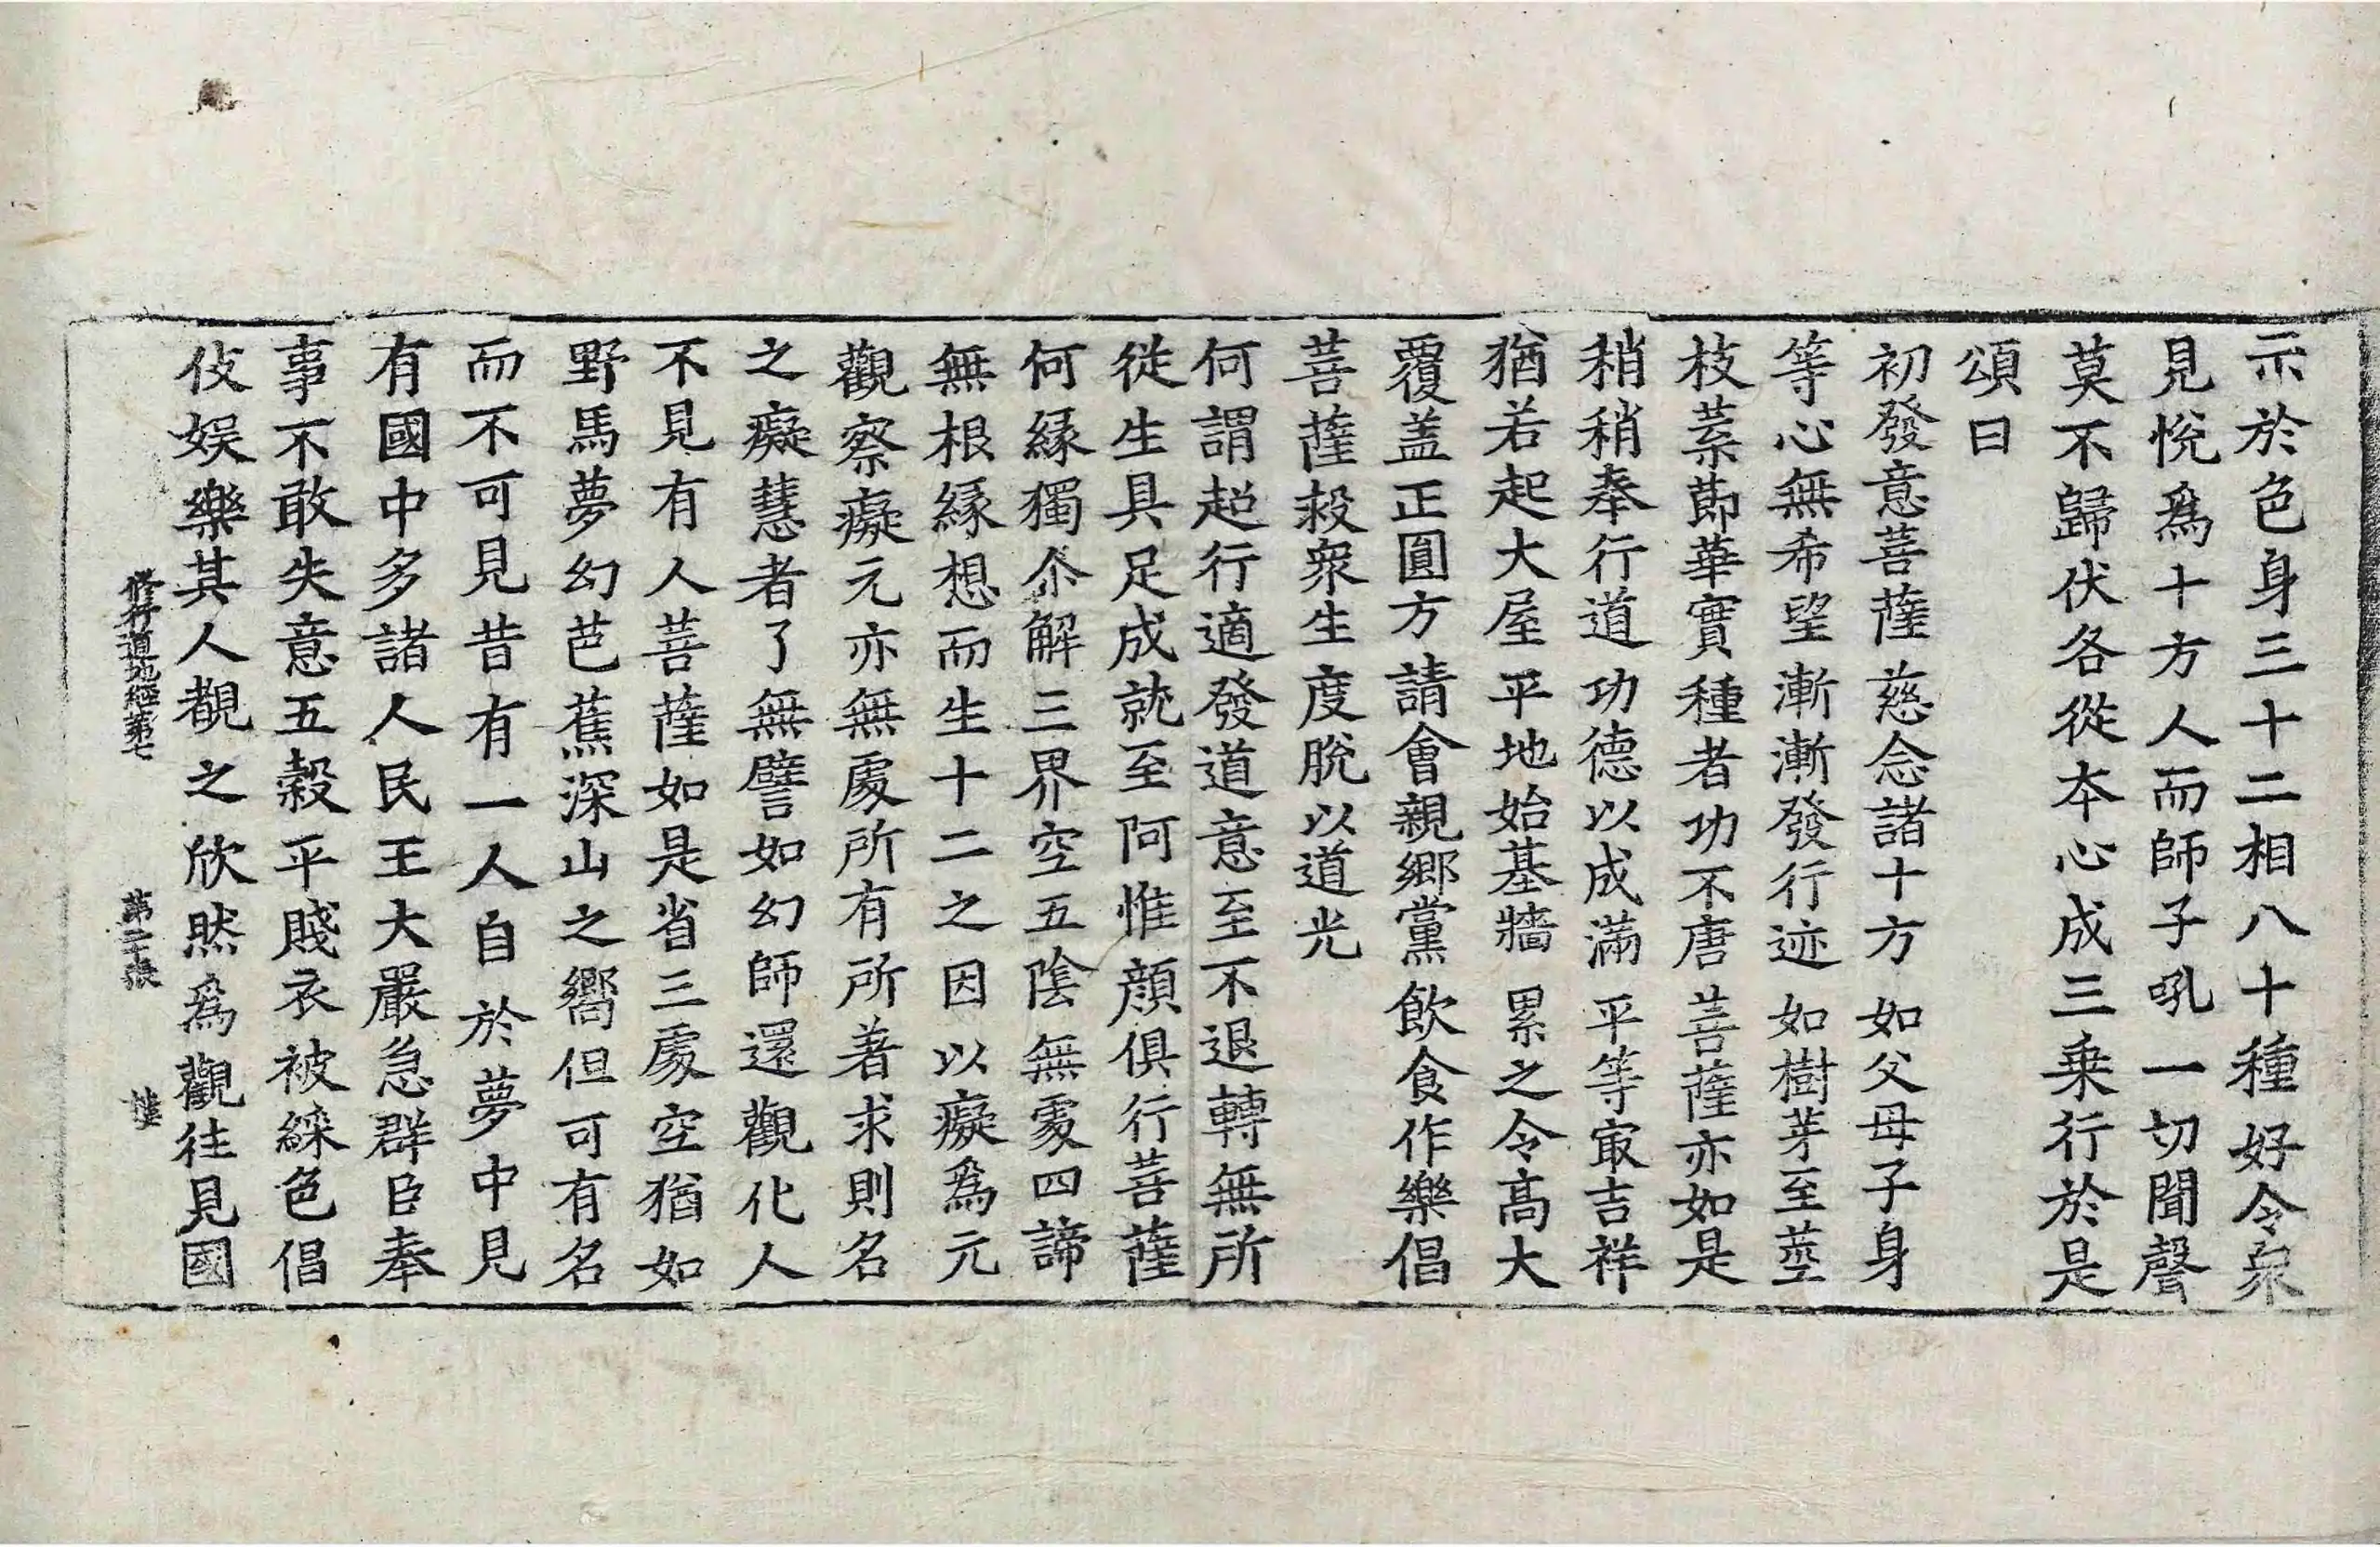 示於色身三十二相八十種好令衆
見悅爲十方人而師子吼一切聞聲
莫不歸伏各從本心成三乗行於是
頌曰
初發意菩薩 慈念諸十方 如父母子身
等心無希望 漸漸發行迹 如樹芽至莖
枝葉節華實 種者功不唐 菩薩亦如是
稍稍奉行道 功德以成滿 平等㝡吉祥
猶若起大屋 平地始基牆 累之令高大
覆盖正圓方 請會親鄉黨 飲食作樂倡
菩薩救衆生 度脫以道光
何謂超行適發道意至不退轉無所
從生具足成就至阿惟顔俱行菩薩
何緣獨尒解三界空五陰無處四諦
無根緣想而生十二之因以癡爲元
觀察癡元亦無處所有所著求則名
之癡慧者了無譬如幻師還觀化人
不見有人菩薩如是省三處空猶如
野馬夢幻芭蕉深山之嚮但可有名
而不可見昔有一人自於夢中見
有國中多諸人民王大嚴急群臣奉
事不敢失意五穀平賤衣被綵色倡
伎娛樂其人覩之欣然爲觀往見國
修行道地經第七 第二十張